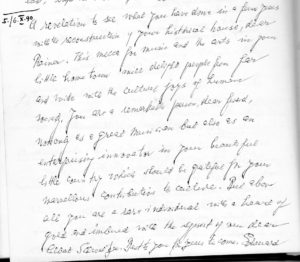 5./6.X.90
A revelation to see what you have done in a few years
with the reconstruction of your historical house, dear
This mecca for music and the arts in your
little home town will delight people from far
and wide with the cultural joys of human
You are a remarkable person, dear friend,
not only as a great musician but also as an
enterprising innovator in your beautiful
little country which should be grateful for your
marvellous contribution to culture. But above
all you are a rare individual with a heart of
gold and imbued with the spirit of our dear
to you for years to come.